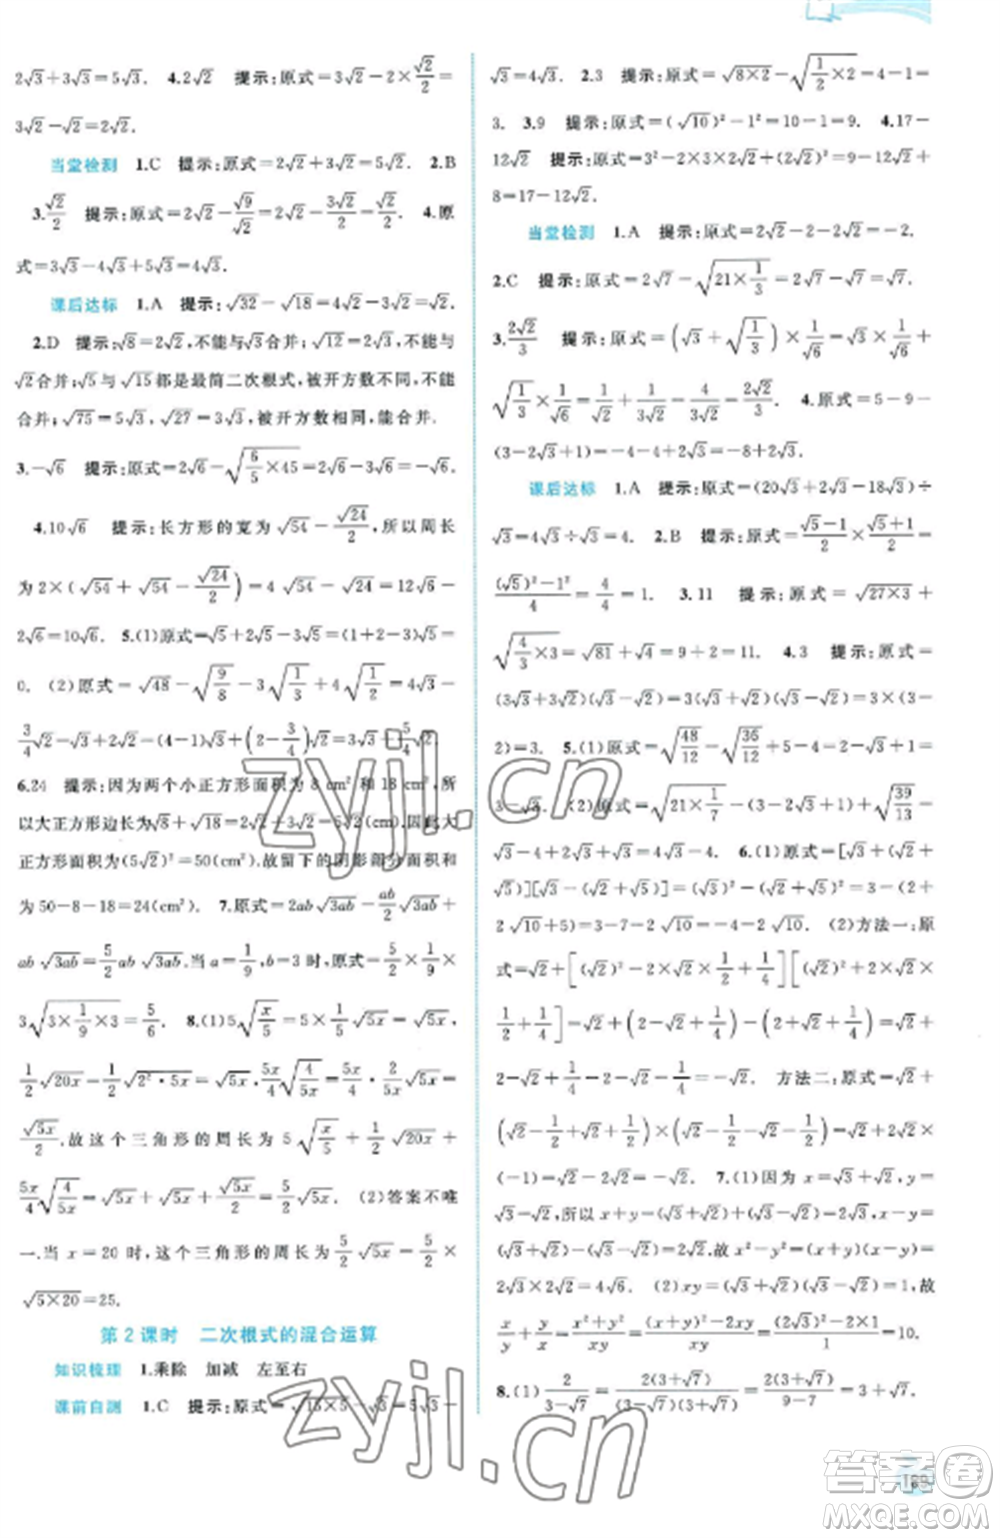 2√3+3√3=5√3. 4.2√2 提示:原式=3√2-2×√2/2=
3√2-√2=2√2.
当堂检测 1.C 提示:原式=2√2+3√2=5√2. 2.B
3.√2/2 提示:原式=2√2-√9/√2=2√2-3√2/2=√2/2. 4.原
式=3√3-4√3+5√3=4√3.
课后达标 1.A 提示:√32-√18=4√2-3√2=√2.
2.D 提示:√8=2√2,不能与√3合并;√12=2√3,不能与
√2合并;√5与√15都是最简二次根式,被开方数不同,不能
合并;√75=5√3,√27=3√3,被开方数相同,能合并.
3.-√6 提示:原式=2√6-√(6/5×45)=2√6-3√6=-√6.
4.10√6 提示:长方形的宽为√54-√24/2,所以周长
为2×(√54+√54-√24/2)=4√54-√24=12√6-
2√6=10√6. 5.(1)原式=√5+√5-2√5=(1+1-2)√5=
0. (2)原式=√48-√(9/8)-3√(1/3)+4√(1/2)=4√3-
3/4√2-√3+2√2=(4-1)√3+(2-3/4)√2=3√3+5/4√2.
6.24 提示:因为两个小正方形面积为8 cm²和18 cm²,所
以大正方形边长为√8+√18=2√2+3√2=5√2(cm),因此大
正方形面积为(5√2)²=50(cm²),故留下的阴影部分面积和
为50-8-18=24(cm²). 7.原式=2ab√3ab-ab/2√3ab+
ab√3ab=5/2ab√3ab.当a=1/9,b=3时,原式=5/2×1/9×
3√(3×1/9×3)=5/6. 8.(1)5√(x/5)=5×1/5×√5x=√5x,
1/2√20x=1/2√(2²·5x)=√5x,5x/4√(4/5x)=5x/4×2/5x×√5x=
√5x/2.故这个三角形的周长为5√(x/5)+1/2√20x+
5x/4√(4/5x)=√5x+√5x+√5x/2=5/2√5x. (2)答案不唯
一.当x=20时,这个三角形的周长为5/2√5x=5/2×
√(5×20)=25.
第2课时 二次根式的混合运算
知识梳理 1.乘除 加减 左至右
课前自测 1.C 提示:原式=√(15×5)-√3=5√3-
√3=4√3. 2.3 提示:原式=√(8×2)-√(1/2×2)=4-1=
3. 3.9 提示:原式=(√10)²-1²=10-1=9. 4.17-
12√2 提示:原式=3²-2×3×2√2+(2√2)²=9-12√2+
8=17-12√2.
当堂检测 1.A 提示:原式=2√2-2-2√2=-2.
2.C 提示:原式=2√7-√(21×1/3)=2√7-√7=√7.
3.2√2/3 提示:原式=(√3+√(1/3))×1/√6=√3×1/√6+
√(1/3)×1/√6=1/√2+1/3√2=4/3√2=2√2/3. 4.原式=5-9-
(3-2√2+1)=-4-4+2√2=-8+2√2.
课后达标 1.A 提示:原式=(20√3+2√3-18√3)÷
√3=4√3÷√3=4. 2.B 提示:原式=(√5-1)/2×(√5+1)/2=
((√5)²-1²)/4=4/4=1. 3.11 提示:原式=√(27×3)+
√(4/3×3)=√81+√4=9+2=11. 4.3 提示:原式=
(3√3+3√2)(√3-√2)=3(√3+√2)(√3-√2)=3×(3-
2)=3. 5.(1)原式=√(48/12)-√(36/12)+1=2-√3+1=
3-√3. (2)原式=√(21×1/7)-(3-2√3+1)+√(39/13)=
√3-4+2√3+√3=4√3-4. 6.(1)原式=[√3+(√2+
√5)][√3-(√2+√5)]=(√3)²-(√2+√5)²=3-(2+
2√10+5)=3-7-2√10=-4-2√10. (2)方法一:原
式=√2+[(√2)²-√2×1/2×2+1/4]-[(√2)²+2×√2×
1/2+1/4]=√2+(2-√2+1/4)-(2+√2+1/4)=√2+
2-√2+1/4-2-√2-1/4=-√2. 方法二:原式=√2+
(√2-1/2+√2+1/2)×(√2-1/2-√2-1/2)=√2+2√2×
(-1)=√2-2√2=-√2. 7.(1)因为x=√3+√2,y=
√3-√2,所以x+y=(√3+√2)+(√3-√2)=2√3,x-y=
(√3+√2)-(√3-√2)=2√2.故x²-y²=(x+y)(x-y)=
2√3×2√2=4√6. (2)xy=(√3+√2)(√3-√2)=1,故
x/y+y/x=(x²+y²)/xy=((x+y)²-2xy)/xy=((2√3)²-2×1)/1=10.
8.(1)2/(3-√7)=2(3+√7)/((3-√7)(3+√7))=2(3+√7)/(9-7)=3+√7.
189
答案圈
MXQE.COM
zyjl.cn
zyjl.cn